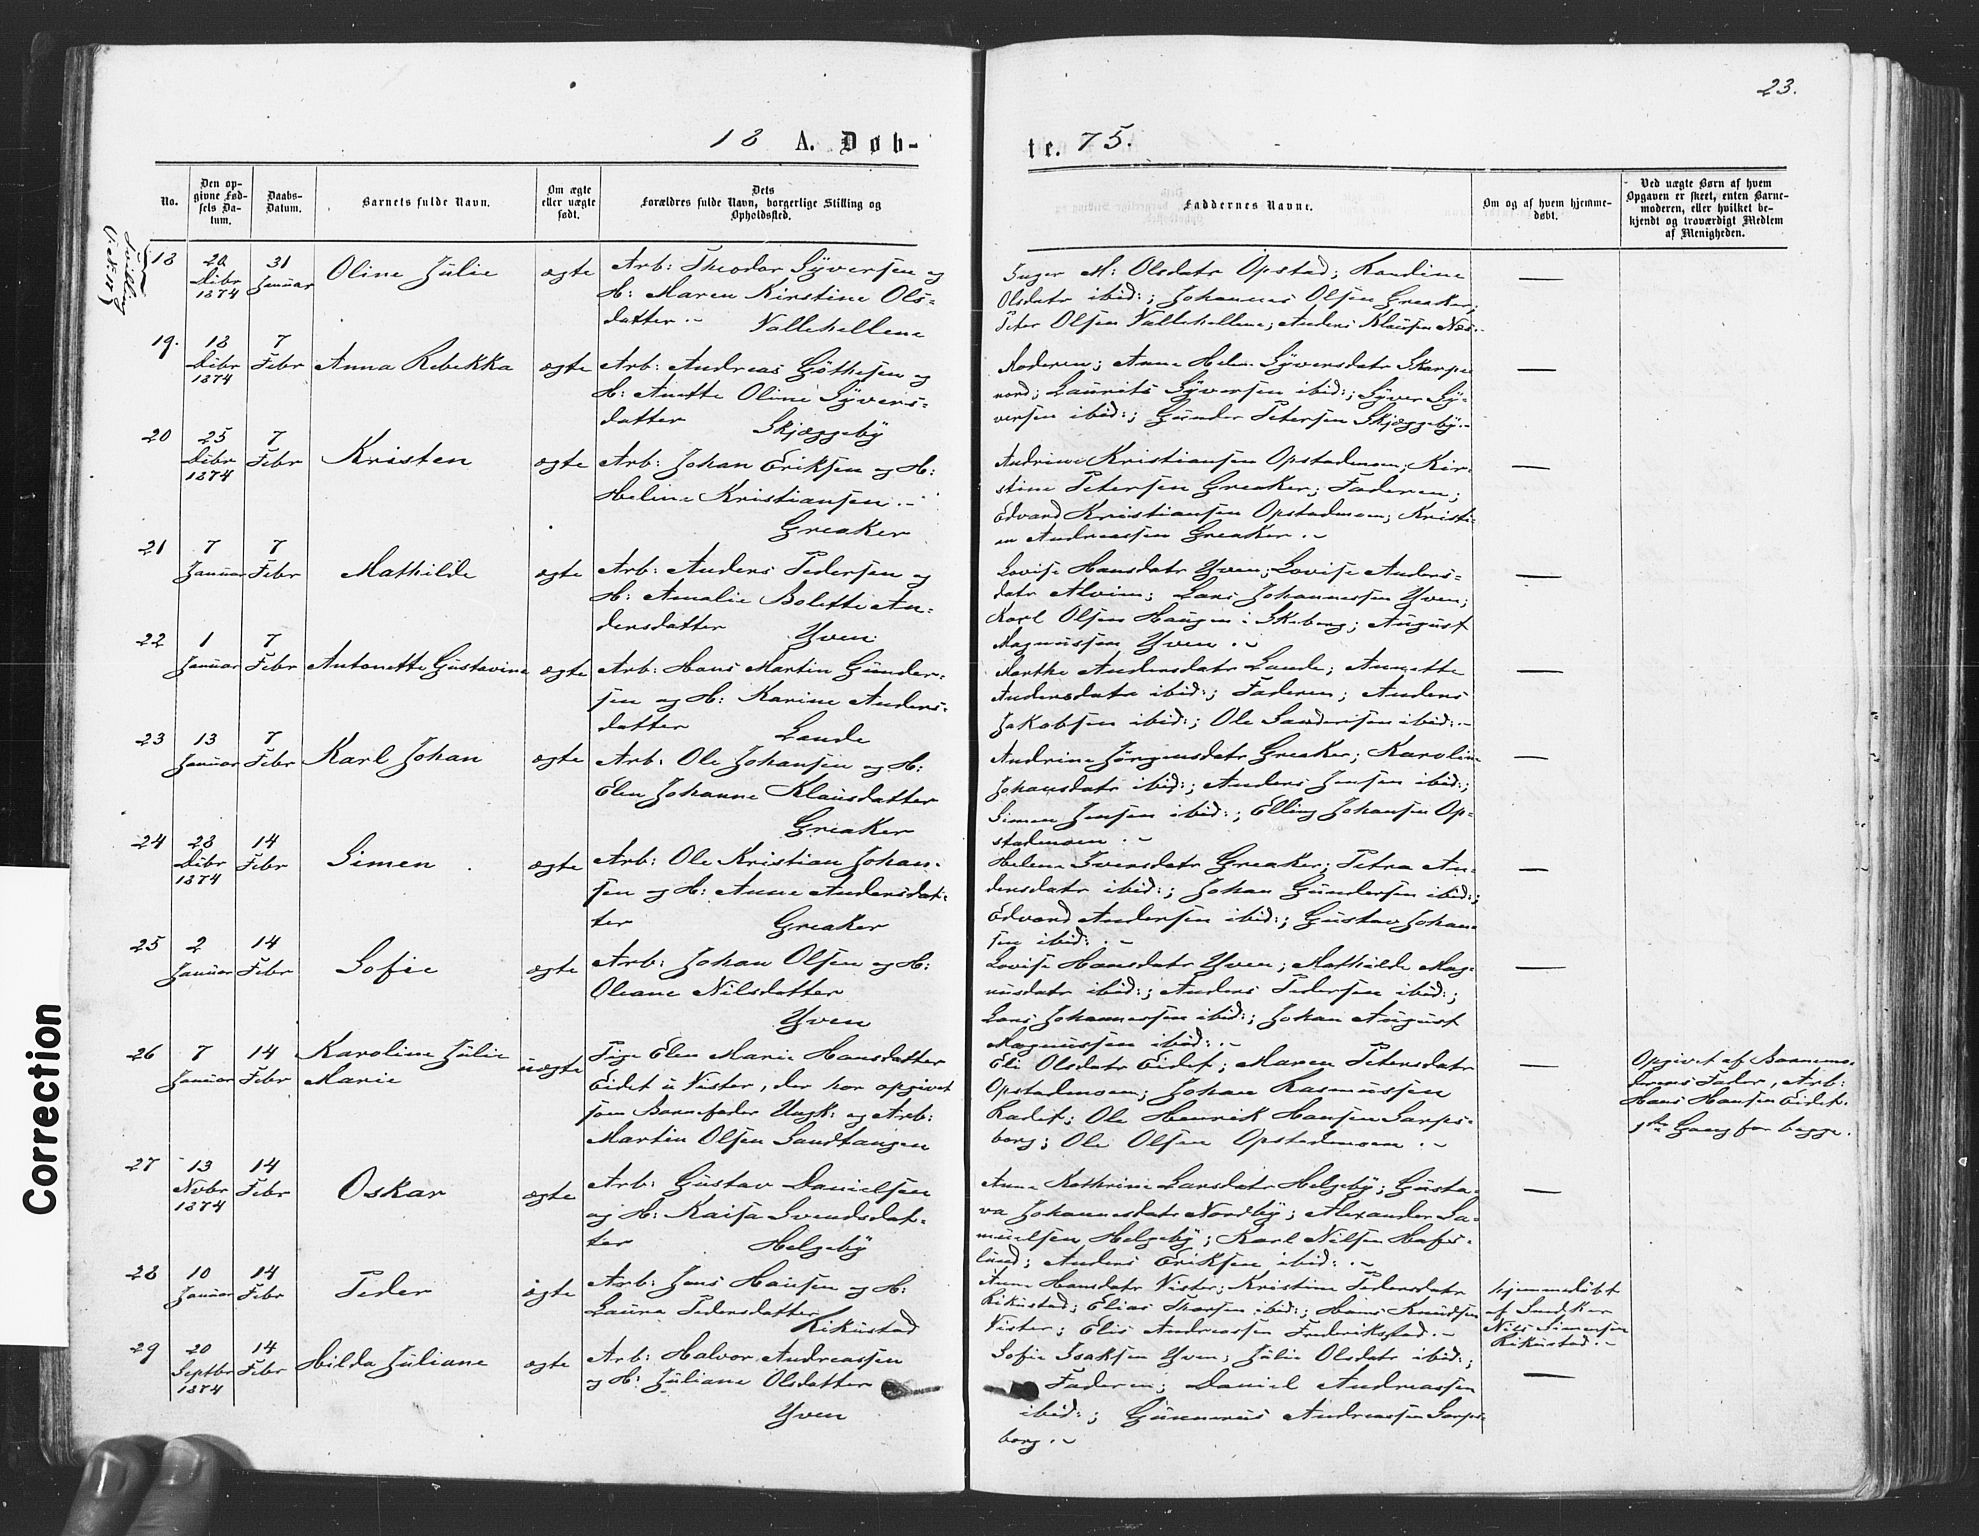 23.
18 A. Døb-
te. 75.
No.
Den op-
givne Fød-
sels Da-
tum.
Daabs-
Datum.
Barnets fulde Navn.
Om ægte
eller uægte
født.
Dets
Forældres fulde Navn, borgerlige Stilling og
Opholdssted.
Faddernes Navne.
Om og af hvem hjemme-
døbt.
Ved uægte Børn af hvem
Opgaven er skeet, enten Barne-
moderen, eller hvilket be-
kjendt og troværdigt Medlem
af Menigheden.
Tvilling
18
20
Dcbr
1874
31
Januar
Oline Julie
ægte
Arb: Theodor Syversen og
H: Maren Kirstine Ols-
datter.- Vallehellene
Inger M: Olsdatr Opstad; Randine
Olsdatr ibid:; Johannes Olsen Greaker;
Peter Olsen Vallehellene; Anders Klausen Næs.-
—
19.
18
Dcbr
1874
7
Febr
Anna Rebekka
ægte
Arb: Andreas Gøthesen og
H: Anette Oline Syvers-
datter Skjæggeby
Moderen; Anne Helen. Syversdatr Skarpe
nord; Laurits Syversen ibid:; Syver Sy-
versen ibid:; Gunder Petersen Skjæggeby.-
—
20
25
Dcbr
1874
7
Febr
Kristen
ægte
Arb: Johan Eriksen og H:
Heline Kristiansen.-
Greaker
Andrine Kristiansen Opstadmoen; Kir-
stine Petersen Greaker; Faderen;
Edvard Kristiansen Opstadmoen; Kristi-
an Andreassen Greaker.-
—
21
7
Januar
7
Febr
Mathilde
ægte
Arb: Anders Pedersen og
H: Amalie Bolette An-
dersdatter Yven
Lovise Hansdatr Yven; Lovise Anders-
datr Alvim; Lars Johannessen Yven;
Karl Olsen Haugen i Skeberg; August
Magnussen Yven.-
—
22
1
Januar
7
Febr
Antonette Gustavine
ægte
Arb: Hans Martin Gunder-
sen og H: Karine Anders-
datter Lande
Marthe Andersdatr Lande; Annette
Andersdatr ibid:; Faderen; Anders
Jakobsen ibid:; Ole Sandersen ibid:-
—
23
13
Januar
7
Febr
Karl Johan
ægte
Arb: Ole Johansen og H:
Elen Johanne Klausdatter
Greaker
Andrine Jørgensdatr Greaker; Karoline
Johansdatr ibid:; Anders Jensen ibid:;
Simen Jensen ibid:; Elling Johansen Op-
stadmoen.-
—
24
28
Dcbr
1874
14
Febr
Simen
ægte
Arb: Ole Kristian Johan-
sen og H: Anne Andersdat-
ter Greaker
Helene Iversdatr Greaker; Petra An-
dersdatr ibid:; Johan Gundersen ibid:;
Edvard Andersen ibid:; Gustav Johan-
sen ibid:.-
—
25
2
Januar
14
Febr
Sofie
ægte
Arb: Johan Olsen og H:
Oleane Nilsdatter
Yven
Lovise Hansdatr Yven; Mathilde Mag-
nusdatr ibid:; Anders Pedersen ibid:;
Lars Johannessen ibid:; Johan August
Magnussen ibid:.-
—
26
7
Januar
14
Febr
Karoline Julie
Marie
uægte
Pige Elen Marie Hansdatter
Eidet u Vister, der har opgivet
som Barnefader Ungk: og Arb:
Martin Olsen Sandtangen
Eli Olsdatr Eidet; Maren Petersdatr
Opstadmoen; Johan Rasmussen
Radet; Ole Henrik Hansen Sarps-
borg; Ole Olsen Opstadmoen.-
—
Opgivet af Barnemo-
derens Fader, Arb:
Hans Hansen Eidet.
1ste Gang for begge.
27
13
Nvbr
1874
14
Febr
Oskar
ægte
Arb: Gustav Danielsen
og H: Kaisa Svendsdat-
ter Helgeby
Anne Kathrine Larsdatr Helgeby; Gusta-
va Johannesdatr Nordby; Alexander Sa-
muelsen Helgeby; Karl Nilsen Hafs-
lund; Anders Eriksen ibid:.-
—
28
10
Januar
14
Febr
Peder
ægte
Arb: Jens Hansen og H:
Laura Pedersdatter
Rikustad
Anne Hansdatr Vister; Kristine Pedersdatr
Rikustad; Elias Thorsen ibid:; Hans Knudsen
Vister; Elis Andreassen Frederikstad.-
hjemmedøbt
af Snedker
Nils Simensen
Rikustad.-
29
20
Septbr
1874
14
Febr
Hilda Juliane
ægte
Arb: Halvor Andreassen
og H: Juliane Olsdatter
Yven
Sofie Isaksen Yven; Julie Olsdatr ibid:;
Faderen; Daniel Andreassen
ibid:; Gunnerus Andreassen Sarps-
borg.-
—
Correction